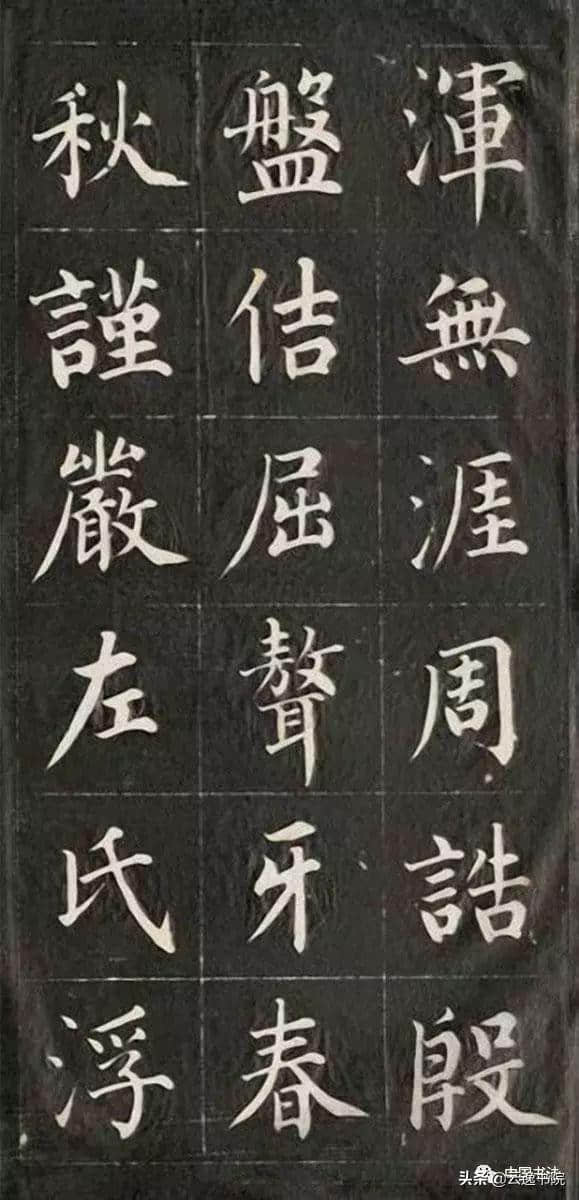 渾無涯周誥殷
盤佶屈聱牙春
秋謹嚴左氏浮
中国书法
头条@云逸书院